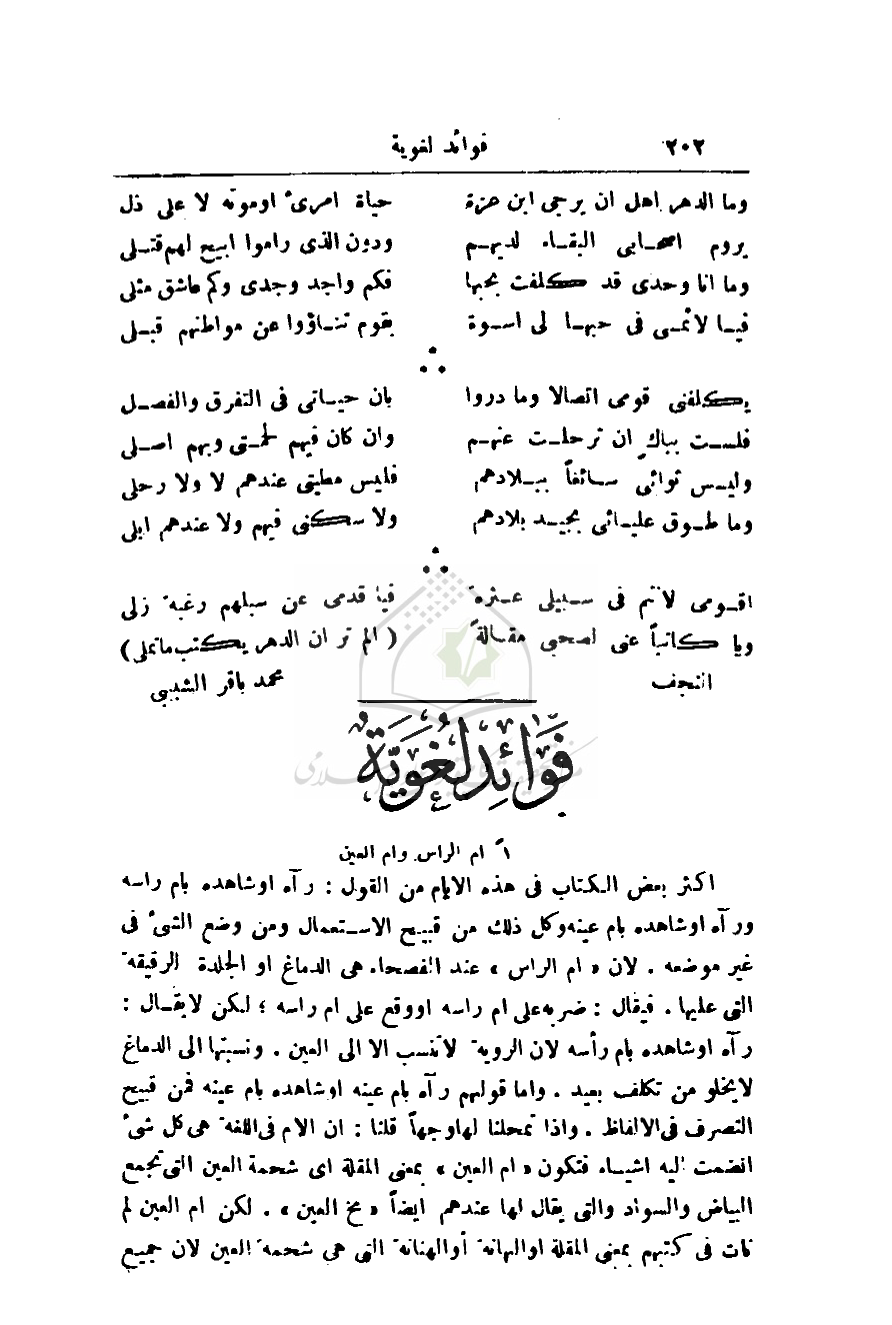 ٢٠٢ فوائد لغوية
وما الدهر اهل ان يرجى ابن عزة حياة امرئ اوموته لا على ذل
يروم اصحابى البقاء لديهم ودون الذى راموا ابيح لهم قتلى
وما انا وحدى قد كلفت بحبها فكم واجد وجدى وكم عاشق مثلى
فيا لائمى فى حبها لى اسوة بقوم تناؤوا عن مواطنهم قبلى
يكلفنى قومى اتصالا وما دروا بان حياتى فى التفرق والفصل
فلست بباك ان ترحلت عنهم وان كان فيهم لحمتى وبهم اصلى
وليس ثوائى سائغاً ببلادهم فليس مطيتى عندهم لا ولا رحلى
وما طوق عليائى بجيد بلادهم ولا سكنى فيهم ولا عندهم ابلى
اقومى لائم فى سبيلى عثرة فيا قدمى عن سبلهم رغبة زلى
ويا كاتباً عنى لصحبى مقالة (الم تر ان الدهر يكتب ماتملى)
النجف محمد باقر الشبيبى
فَوَائِد لُغَوِيَّة
١ً ام الراس وام العين
اكثر بعض الكتاب فى هذه الايام من القول : رآه اوشاهده بام راسه
ورآه اوشاهده بام عينه وكل ذلك من قبيح الاستعمال ومن وضع الشئ فى
غير موضعه . لان « ام الراس » عند الفصحاء هى الدماغ او الجلدة الرقيقة
التى عليها . فيقال : ضربه على ام راسه اووقع على ام راسه ؛ لكن لايقال :
رآه اوشاهده بام رأسه لان الروية لاتنسب الا الى العين . ونسبتها الى الدماغ
لايخلو من تكلف بعيد . واما قولهم رآه بام عينه اوشاهده بام عينه فمن قبيح
التصرف فى الالفاظ . واذا تمحلنا لهاوجهاً قلنا : ان الام فى اللغة هى كل شئ
انضمت اليه اشياء فتكون « ام العين » بمعنى المقلة اى شحمة العين التى تجمع
البياض والسواد والتى يقال لها عندهم ايضاً « مخ العين » . لكن ام العين لم
تات فى كتبهم بمعنى المقلة اوالبهانة أوالهنانة التى هى شحمة العين لان جميع